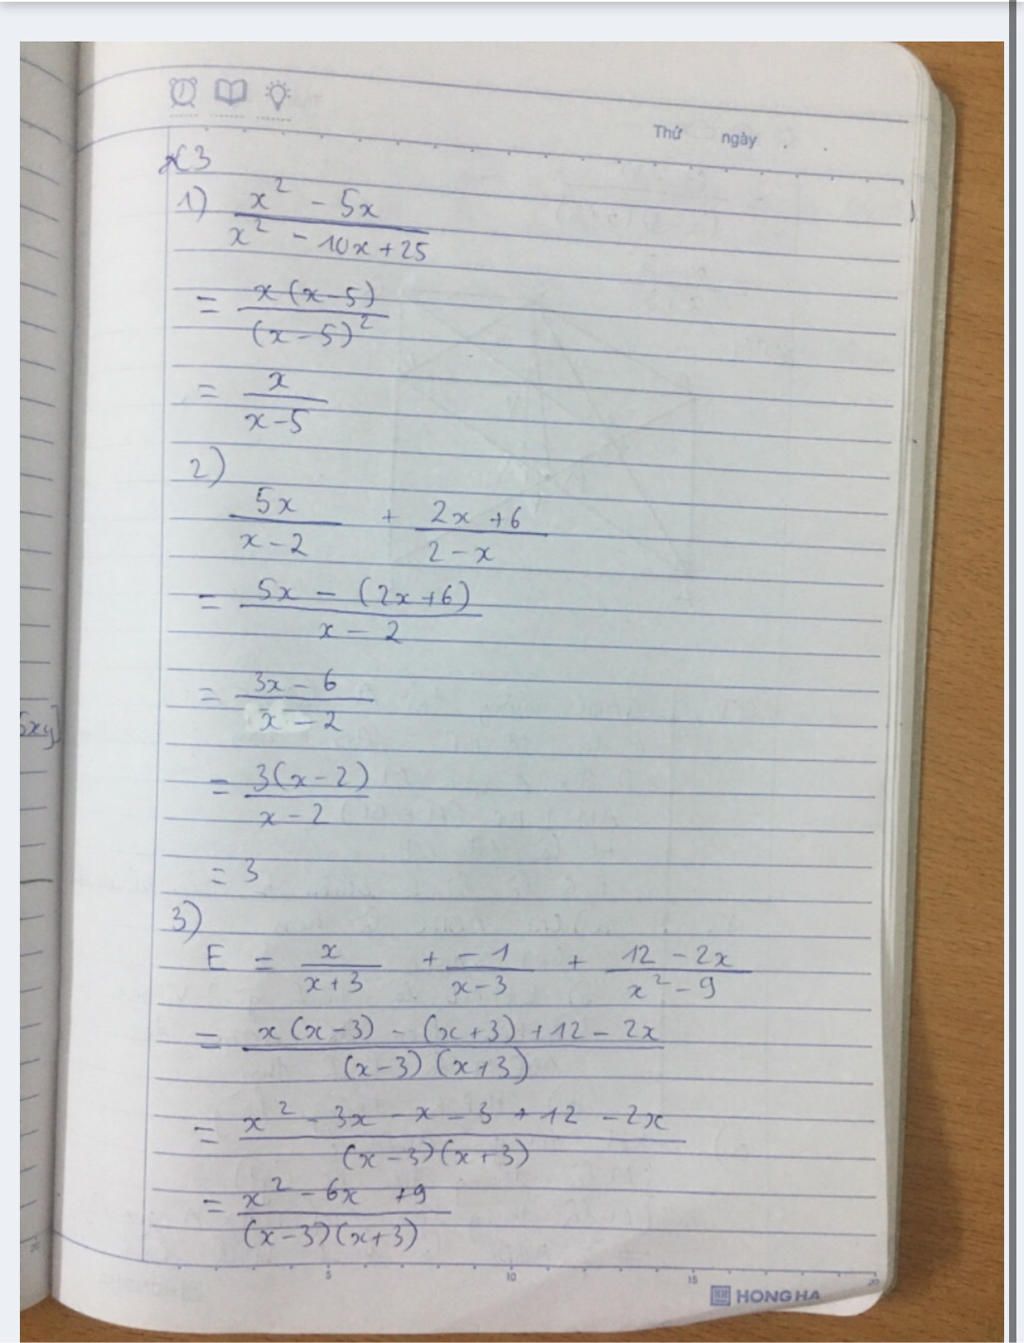 Thứ ngày
x3
1) \frac{x^2 - 5x}{x^2 - 10x + 25}
= \frac{x(x-5)}{(x-5)^2}
= \frac{x}{x-5}
2)
\frac{5x}{x-2} + \frac{2x+6}{2-x}
= \frac{5x - (2x+6)}{x-2}
= \frac{3x-6}{x-2}
5xy]
= \frac{3(x-2)}{x-2}
= 3
3)
E = \frac{x}{x+3} + \frac{-1}{x-3} + \frac{12-2x}{x^2-9}
= \frac{x(x-3) - (x+3) + 12 - 2x}{(x-3)(x+3)}
= \frac{x^2 - 3x - x - 3 + 12 - 2x}{(x-3)(x+3)}
= \frac{x^2 - 6x + 9}{(x-3)(x+3)}
20 5 10 15 20
HONG HA